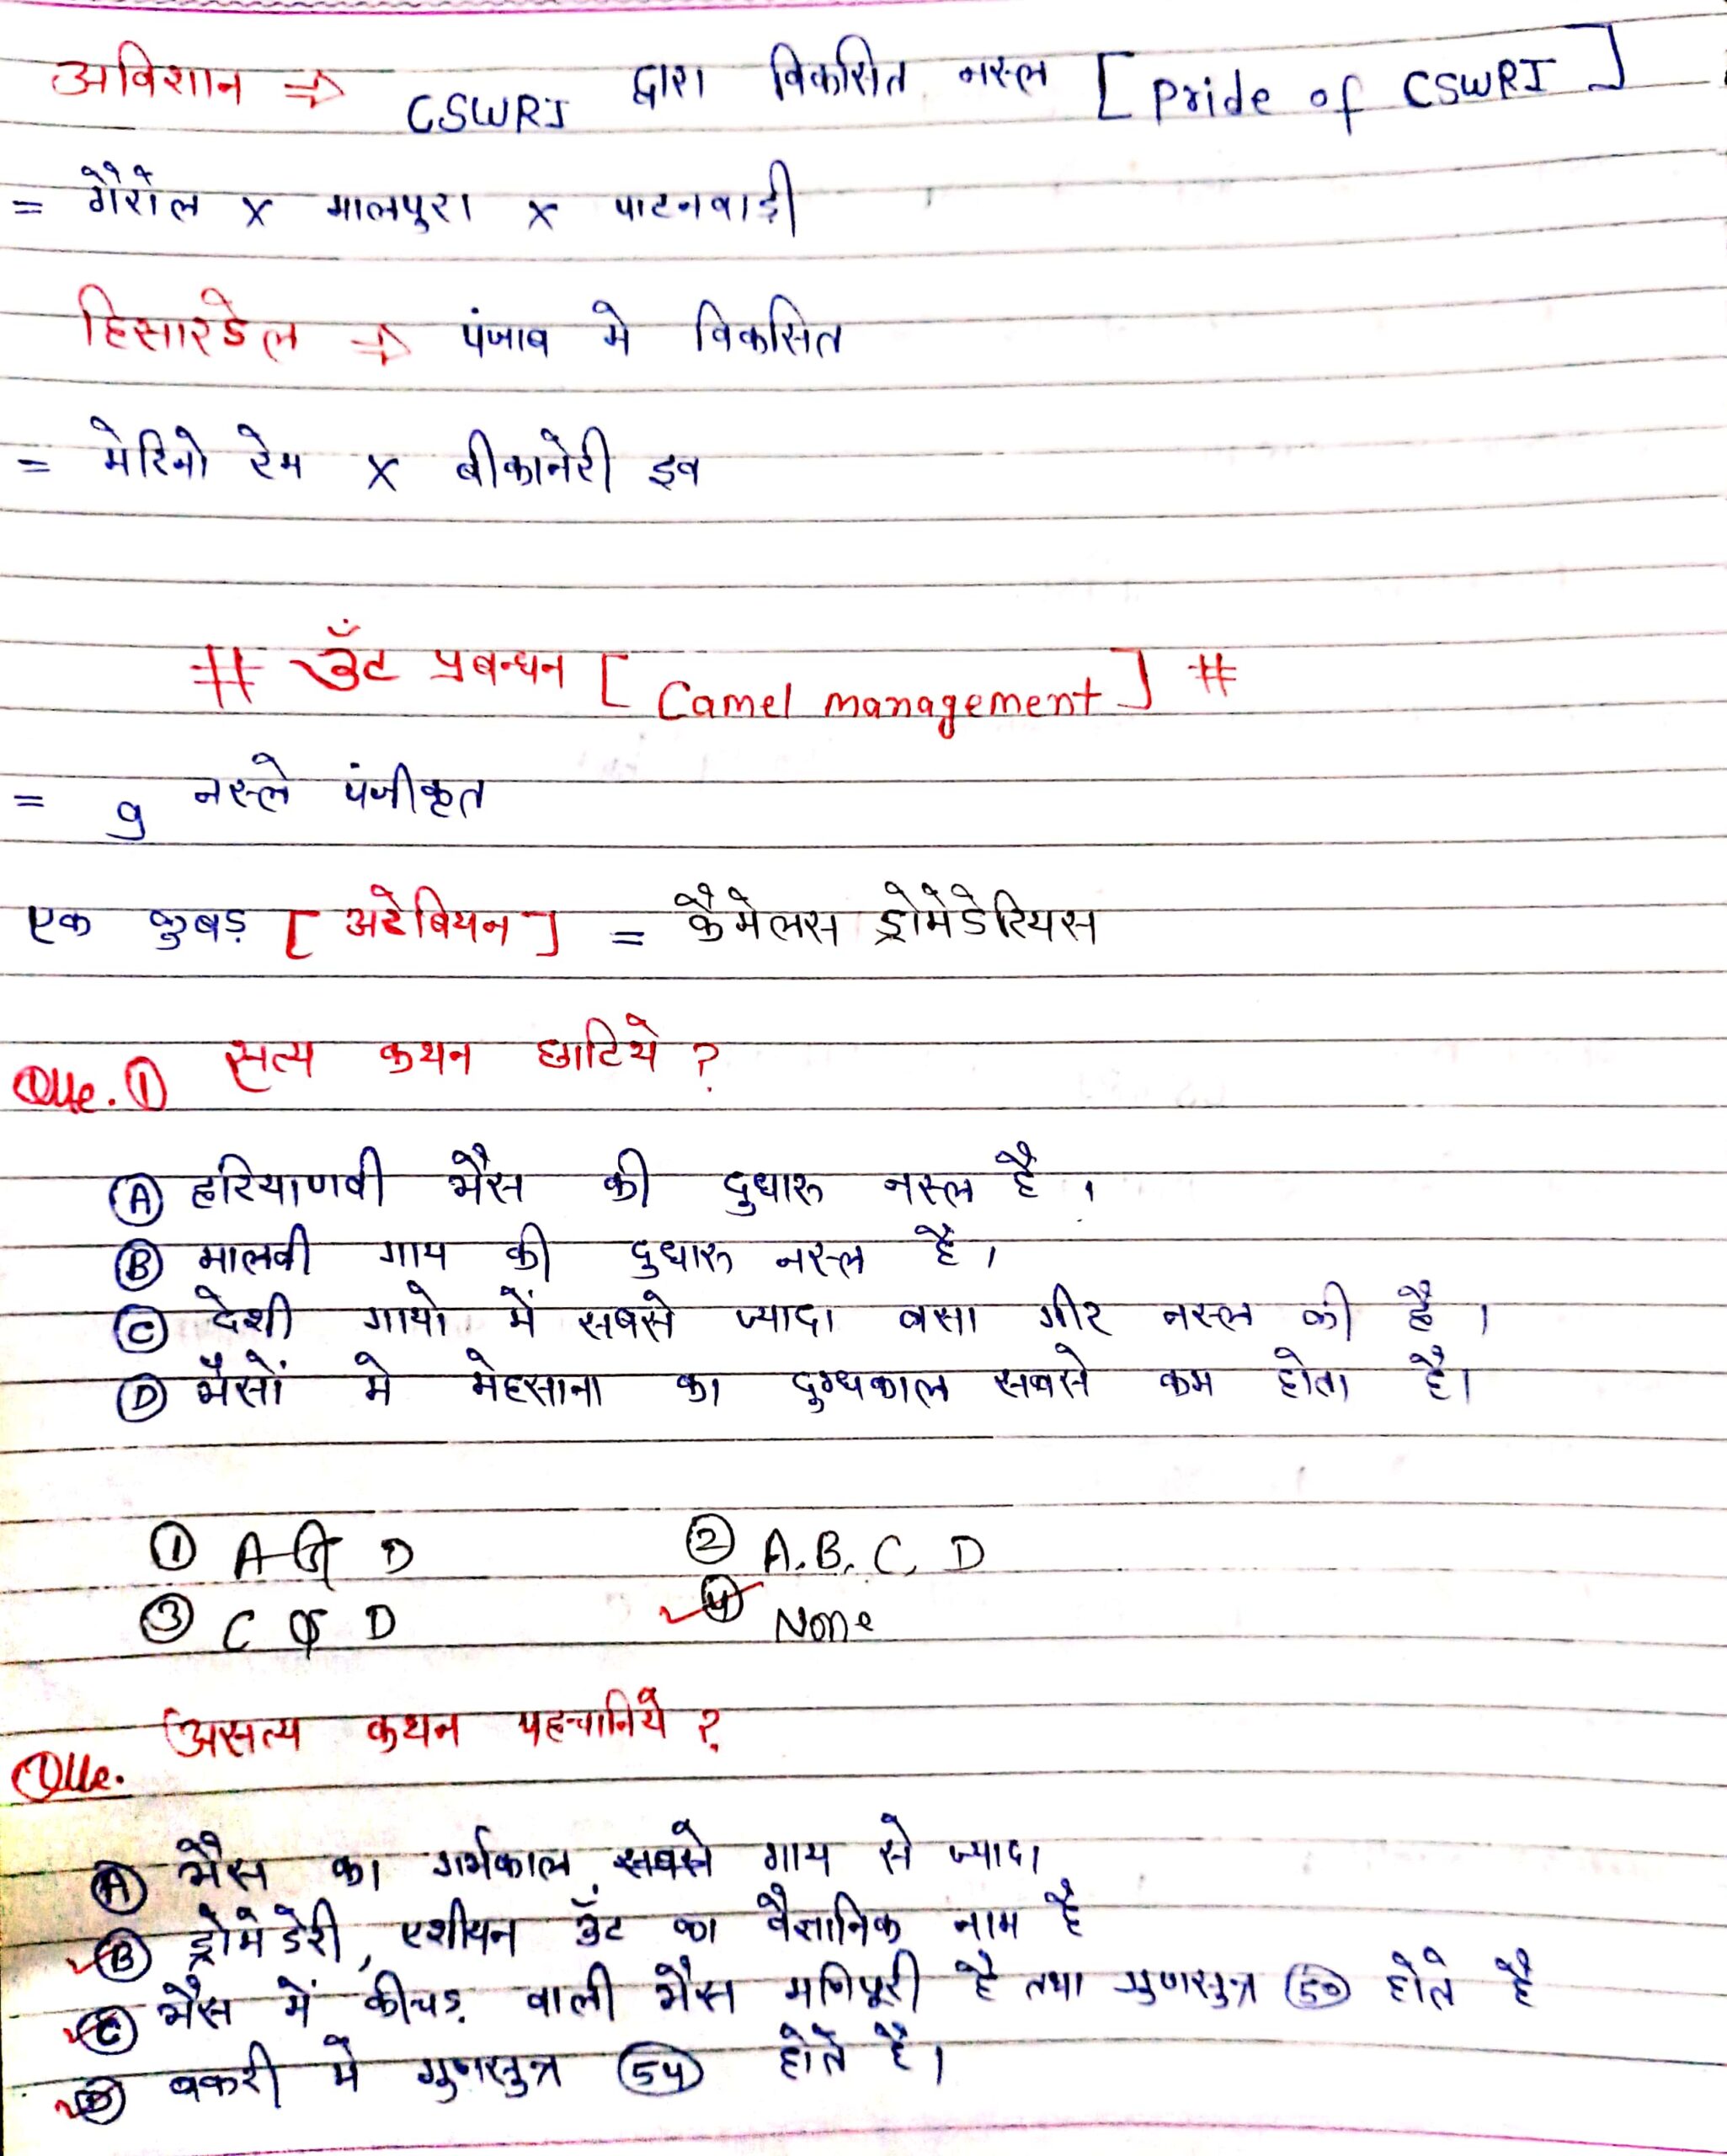 अविशान ⇒ CSWRI द्वारा विकसित नस्ल [ Pride of CSWRI ]
= गैरोल x मालपुरा x पाटनवाड़ी
हिसारडेल ⇒ पंजाब मे विकसित
= मेरिनो रेम x बीकानेरी इव
# ऊँट प्रबन्धन [ Camel management ] #
= 9 नस्ले पंजीकृत
एक कुबड़ [ अरेबियन ] = कैमेलस ड्रोमेडेरियस
Que. ① सत्य कथन छाटिये ?
Ⓐ हरियाणवी भैस की दुधारू नस्ल है ।
Ⓑ मालवी गाय की दुधारू नस्ल है ।
Ⓒ देशी गायो में सबसे ज्यादा वसा गीर नस्ल की है ।
Ⓓ भैसों मे मेहसाना का दुग्धकाल सबसे कम होता है।
① A व D ② A. B. C, D
③ C व D ④ None
Que. असत्य कथन पहचानिये ?
Ⓐ भैस का गर्भकाल सबसे गाय से ज्यादा
Ⓑ ड्रोमेडेरी, एशीयन ऊँट का वैज्ञानिक नाम है
Ⓒ भैस में कीचड़ वाली भैस मणिपूरी है तथा गुणसुत्र 50 होते है
Ⓓ बकरी मे गुणसुत्र 54 होते है ।